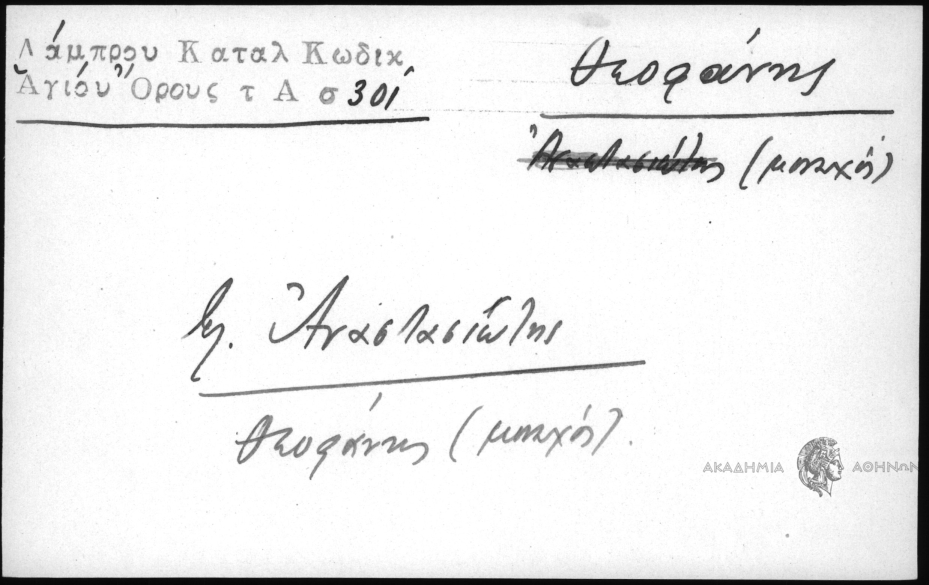 Λάμπρου Καταλ Κωδικ
Ἁγίου Ὄρους τ Α σ 301
Θεοφάνης
Ἀναστασιώτης (μοναχός)
Ἀναστασιώτης
Θεοφάνης (μοναχός).
ΑΚΑΔΗΜΙΑ ΑΘΗΝΩΝ